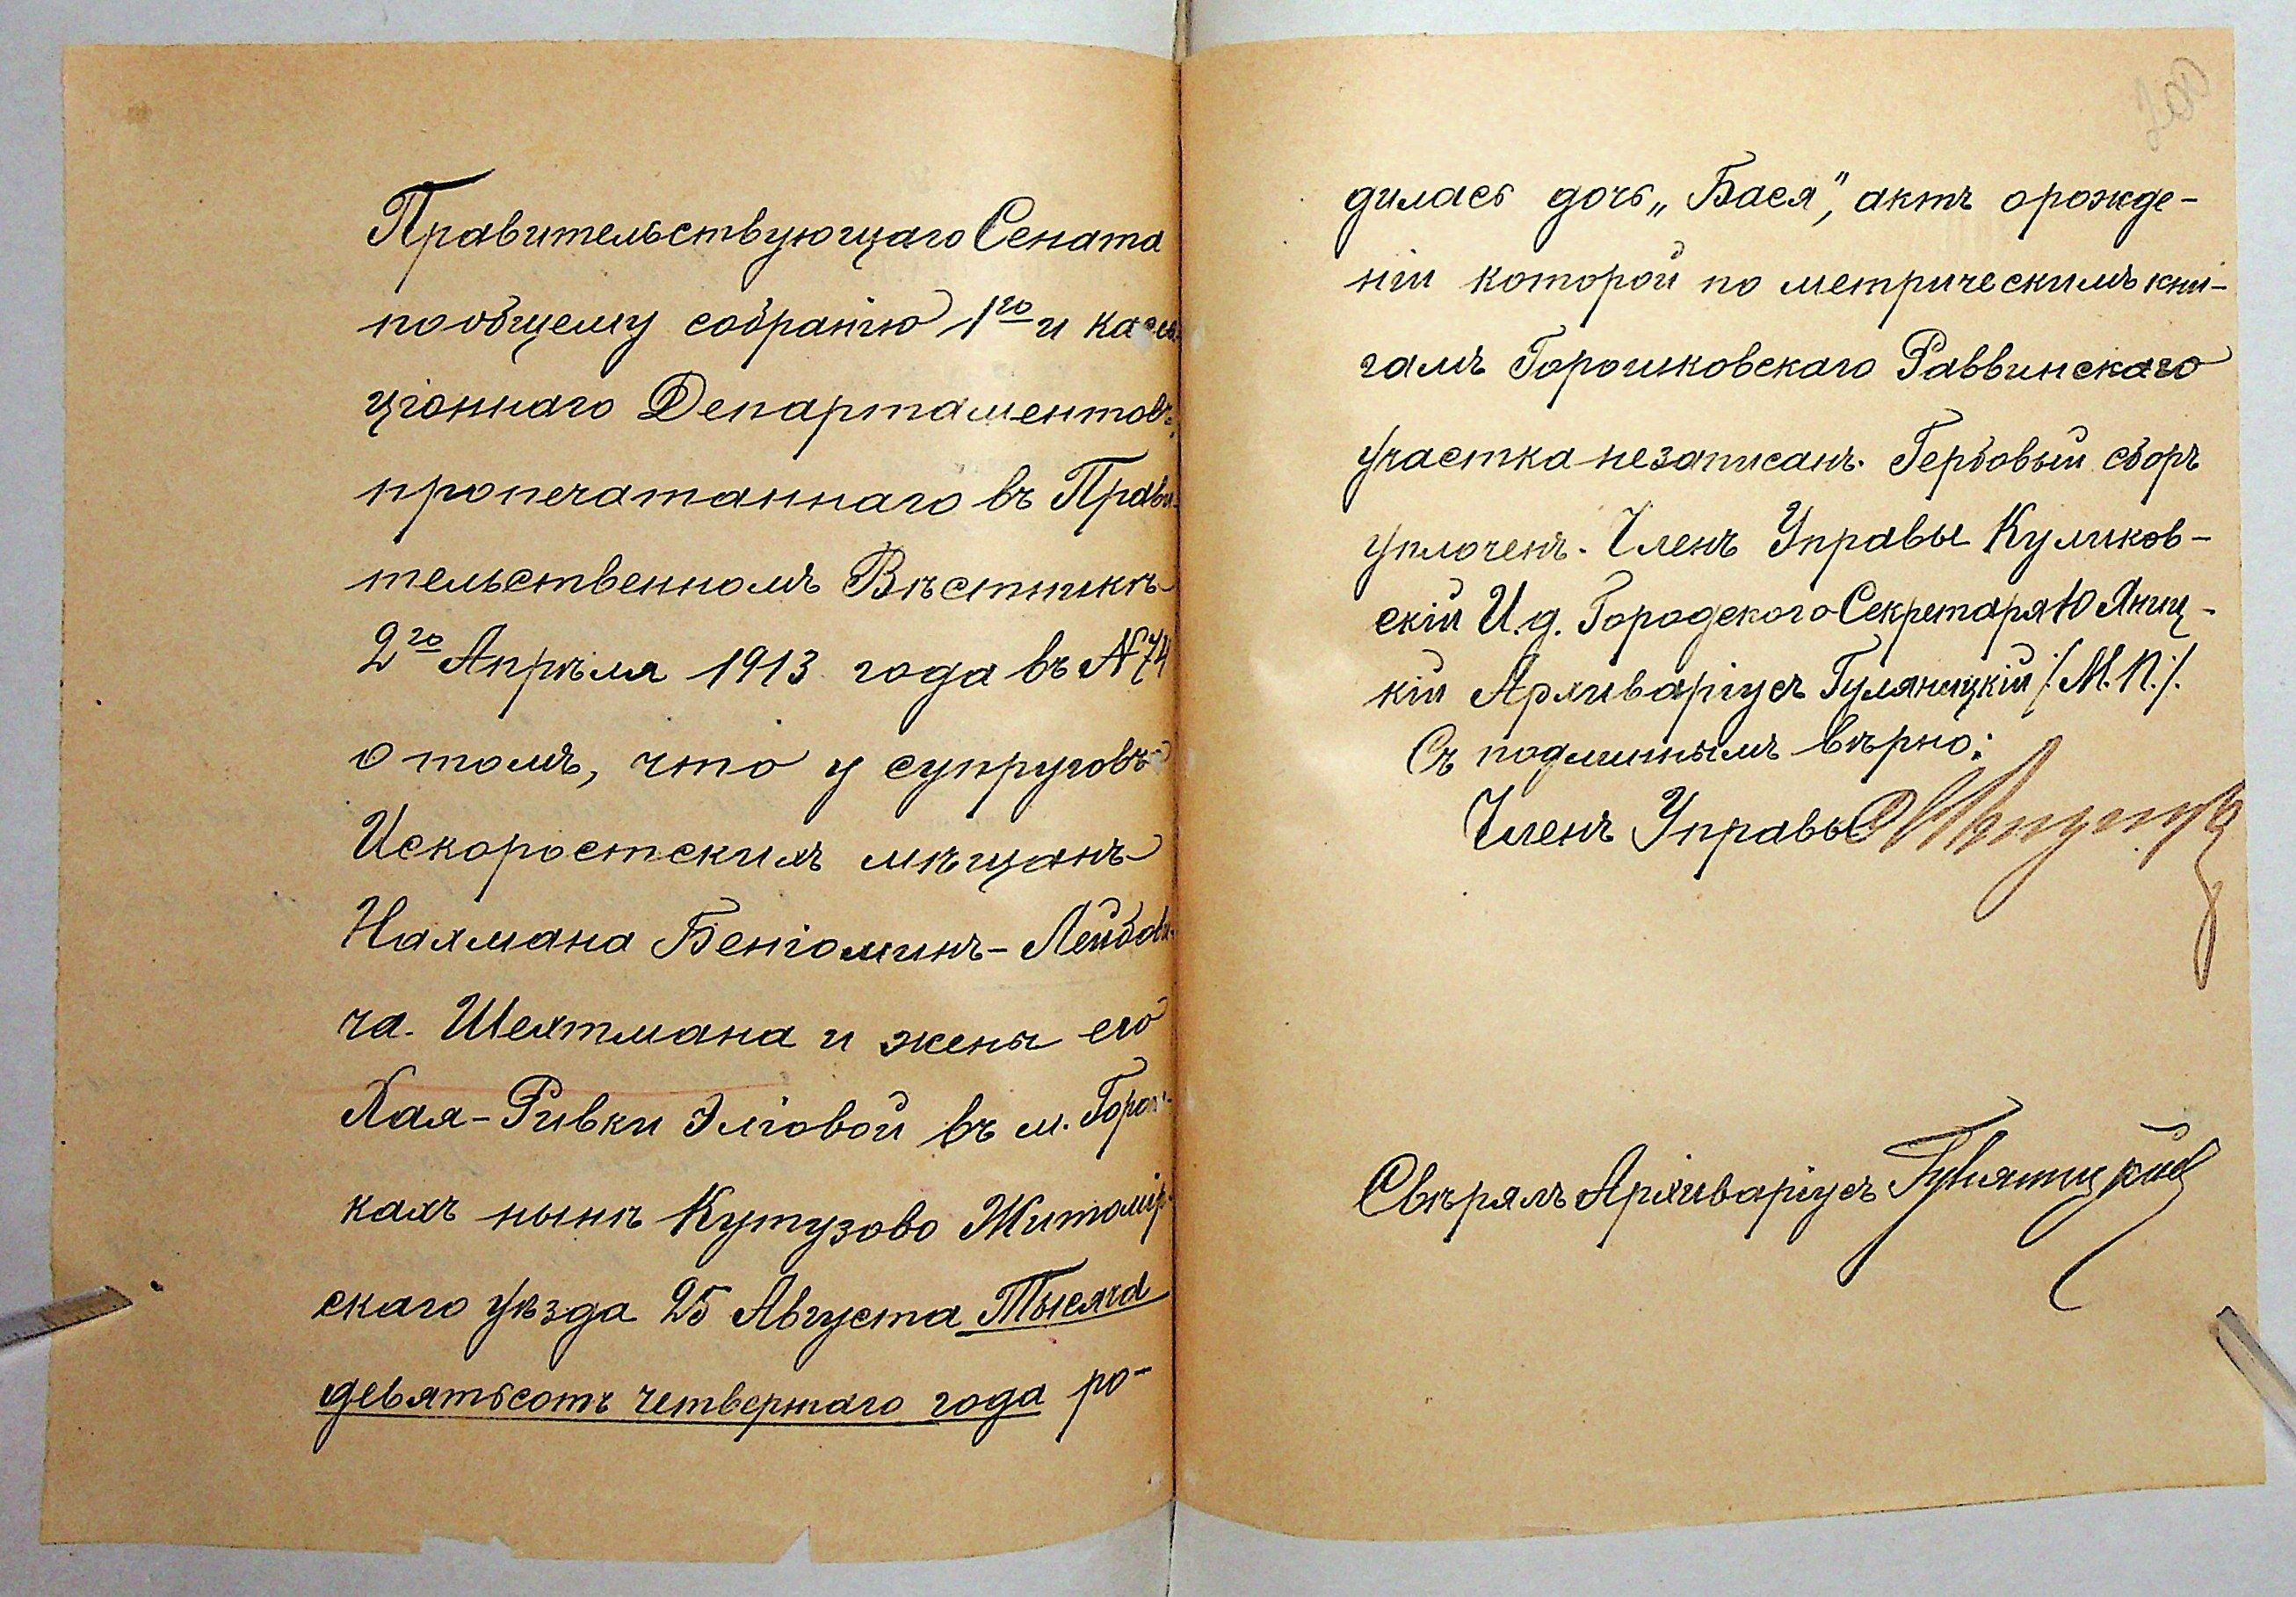 Правительствующаго Сената
по общему собранію 1го и касса-
ціоннаго Департаментовъ,
пропечатаннаго въ Прави-
тельственномъ Вѣстникѣ
2го Апрѣля 1913 года въ № 74
о томъ, что у супруговъ
Искоростскихъ мѣщанъ
Нахмана Беніоминъ-Лейбови-
ча Шехтмана и жены его
Хая-Ривки Эліовой въ м. Горош-
кахъ нынѣ Кутузово Житомір-
скаго уѣзда 25 Августа Тысяча
девятьсотъ четвертаго года ро-
200
дилась дочь „Бася", актъ о рожде-
ніи которой по метрическимъ кни-
гамъ Горошковскаго Раввинскаго
участка незаписанъ. Гербовый сборъ
уплоченъ. Членъ Управы Куликов-
скій И.д. Городского Секретаря Ю Яниц-
кій Архиваріусъ Гуляницкій /М.П./.
Съ подлиннымъ вѣрно:
Членъ Управы
Свѣрялъ Архиваріусъ Гуляницкій